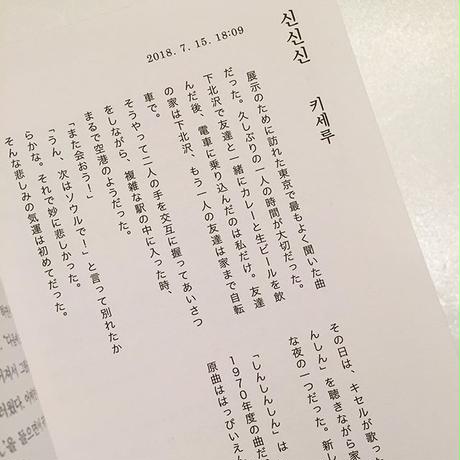 신신신 키세루
2018. 7. 15. 18:09
展示のために訪れた東京で最もよく聞いた曲
だった。久しぶりの一人の時間が大切だった。
下北沢で友達と一緒にカレーと生ビールを飲
んだ後、電車に乗り込んだのは私だけ。友達
の家は下北沢、もう一人の友達は家まで自転
車で。
そうやって二人の手を交互に握ってあいさつ
をしながら、複雑な駅の中に入った時、
まるで空港のようだった。
「また会おう!」
「うん、次はソウルで!」と言って別れたか
らかな。それで妙に悲しかった。
そんな悲しみの気運は初めてだった。
その日は、キセルが歌っ
んしん」を聴きながら家
な夜の一つだった。新し
「しんしんしん」は
1970年度の曲だ
原曲ははっぴいえん
을 들으면서